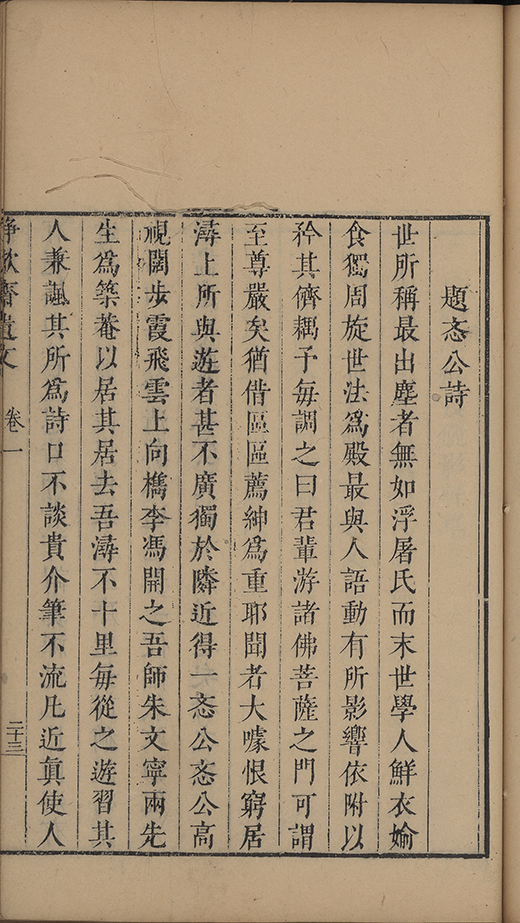 題忞公詩
世所稱最出塵者無如浮屠氏而末世學人鮮衣婾
食獨周旋世法為殿最與人語動有所影響依附以
矜其儕耦予每調之曰君輩游諸佛菩薩之門可謂
至尊嚴矣猶借區區薦紳為重耶聞者大噱恨窮居
潯上所與遊者甚不廣獨於隣近得一忞公忞公高
視闊步霞飛雲上向檇李馮開之吾師朱文寧兩先
生爲築菴以居其居去吾潯不十里每從之遊習其
人兼諷其所爲詩口不談貴介筆不流凡近眞使人
齋遺文 卷一 二十三